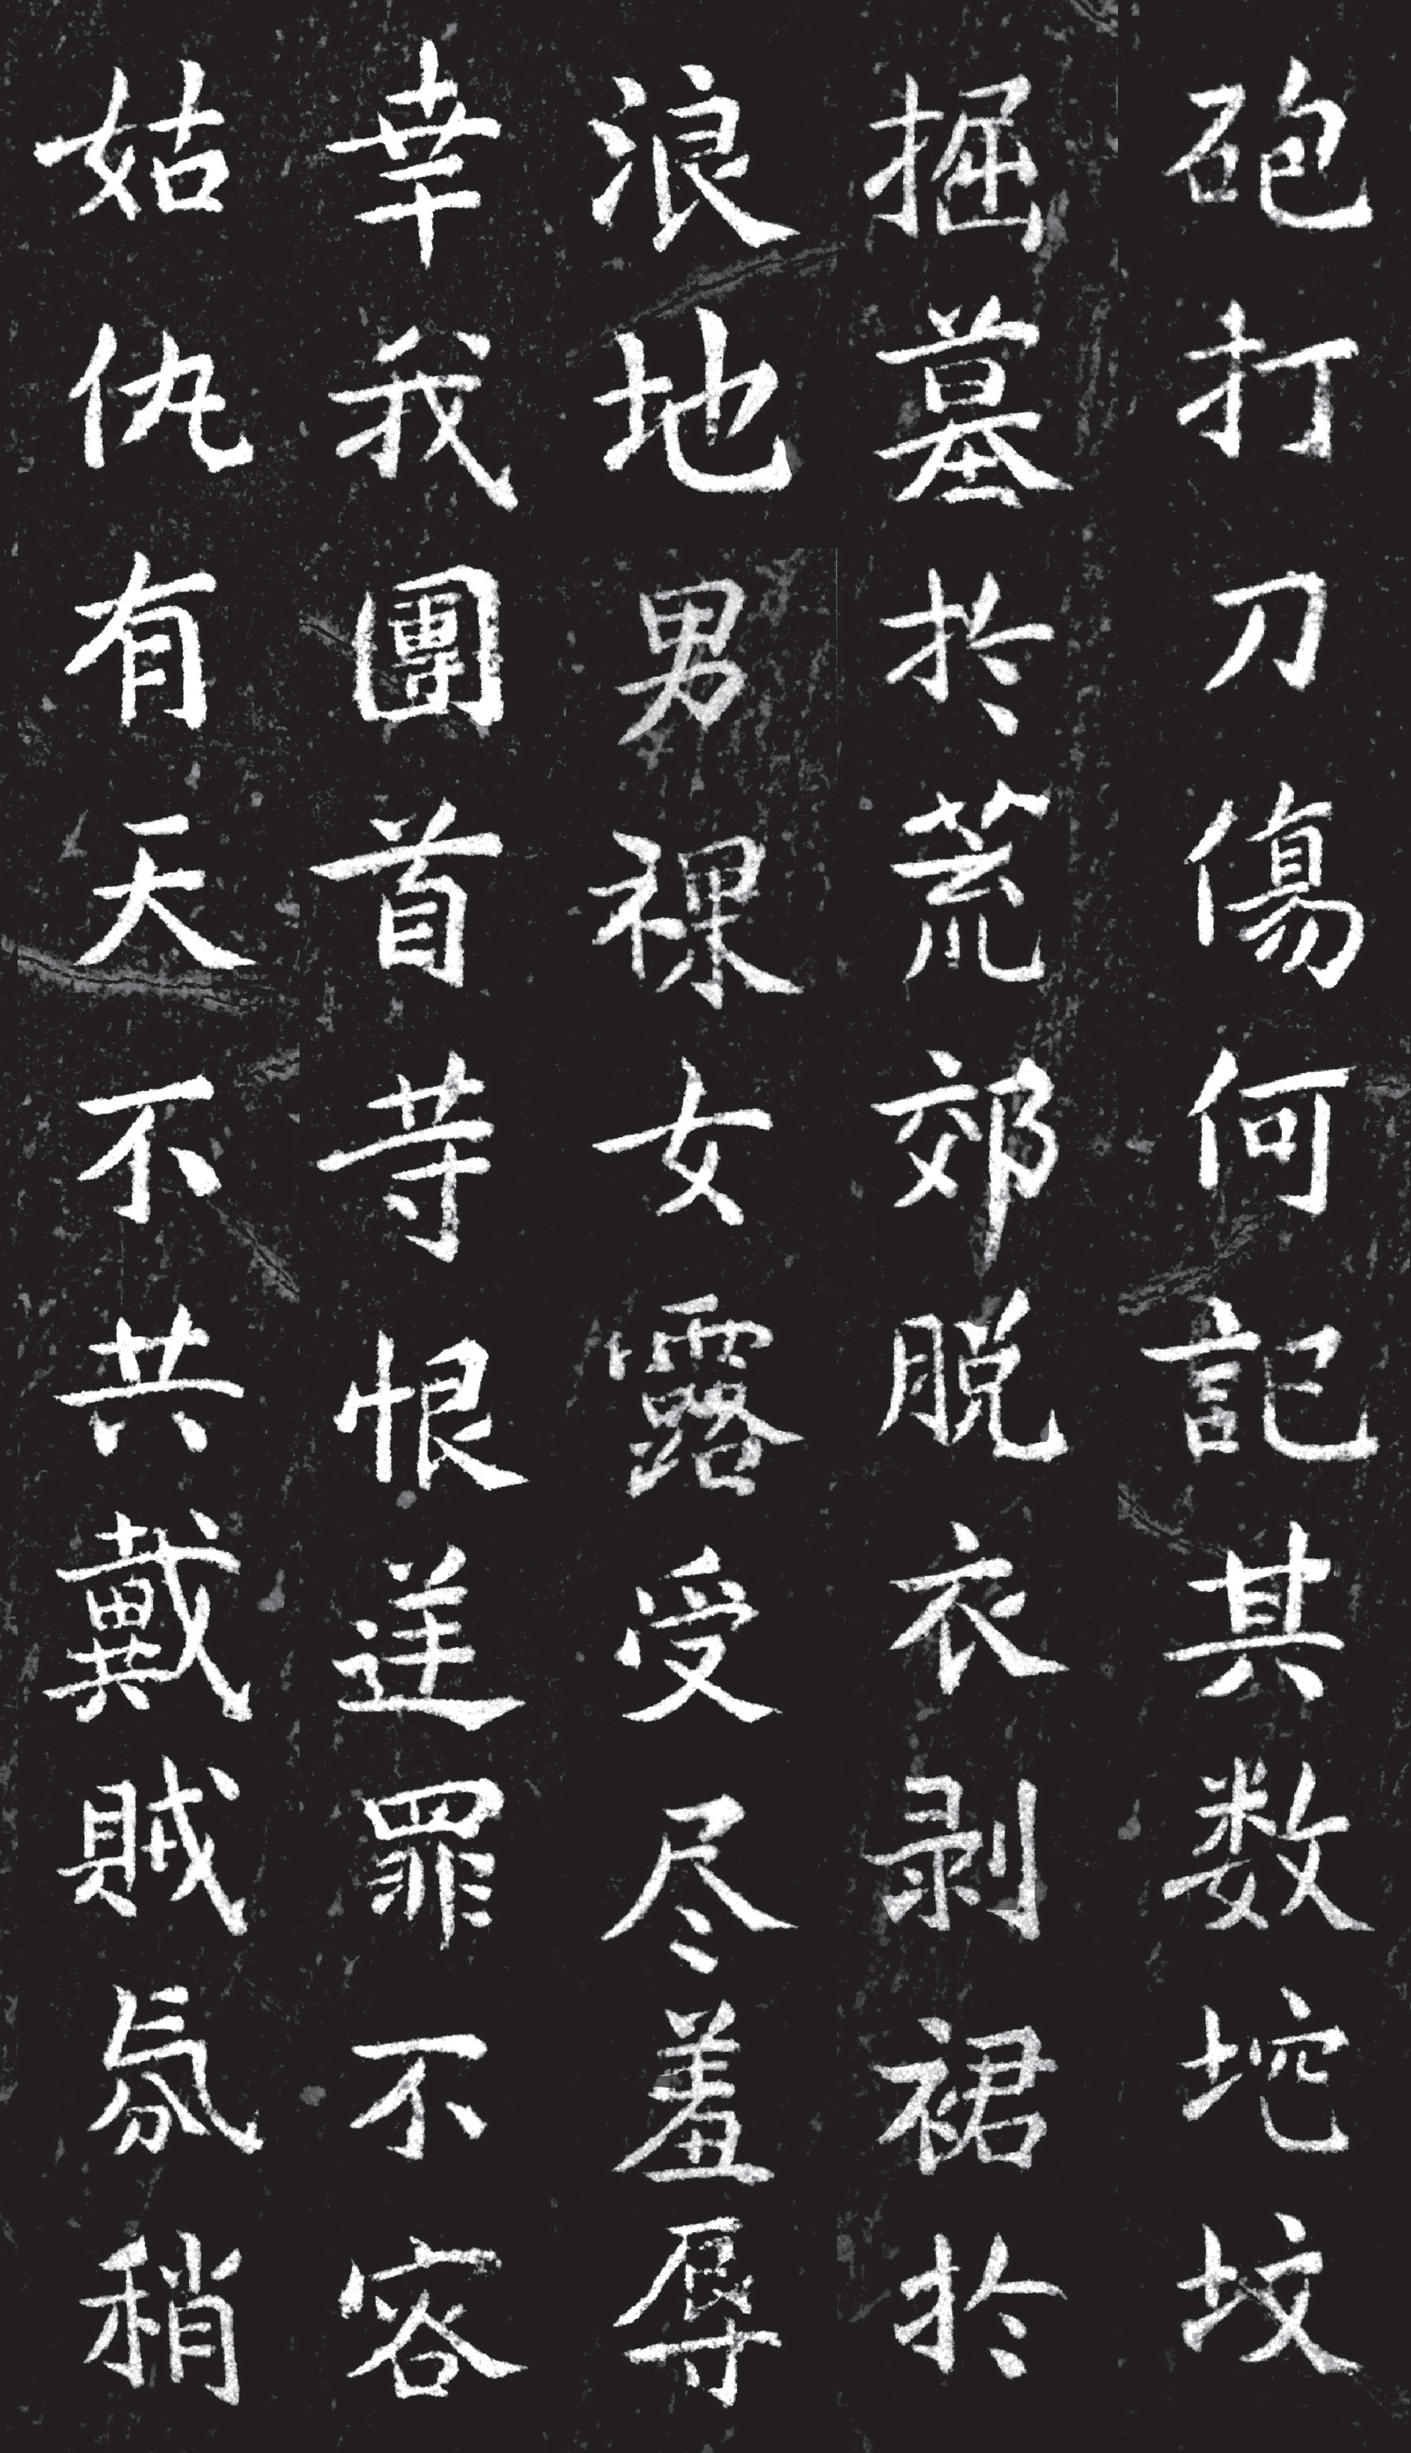 砲打刀傷何記其数挖坟
掘墓扵荒郊脱衣剥裙扵
浪地男裸女露受尽羞辱
幸我團首䓁恨逆罪不容
姑仇有天不共戴賊氛稍